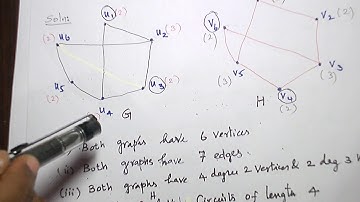 Soln:
u1 (2)
u6 (2)
u2 (3)
u5 (2)
u3 (2)
u4
G
v6 (2)
v2 (2)
v5 (3)
v3 (3)
v4 (2)
H
Both graphs have 6 vertices
(ii) Both graphs have 7 edges.
(iii) Both graphs have 4 degree 2 vertices & 2 deg 3
H
Circuits of length 4